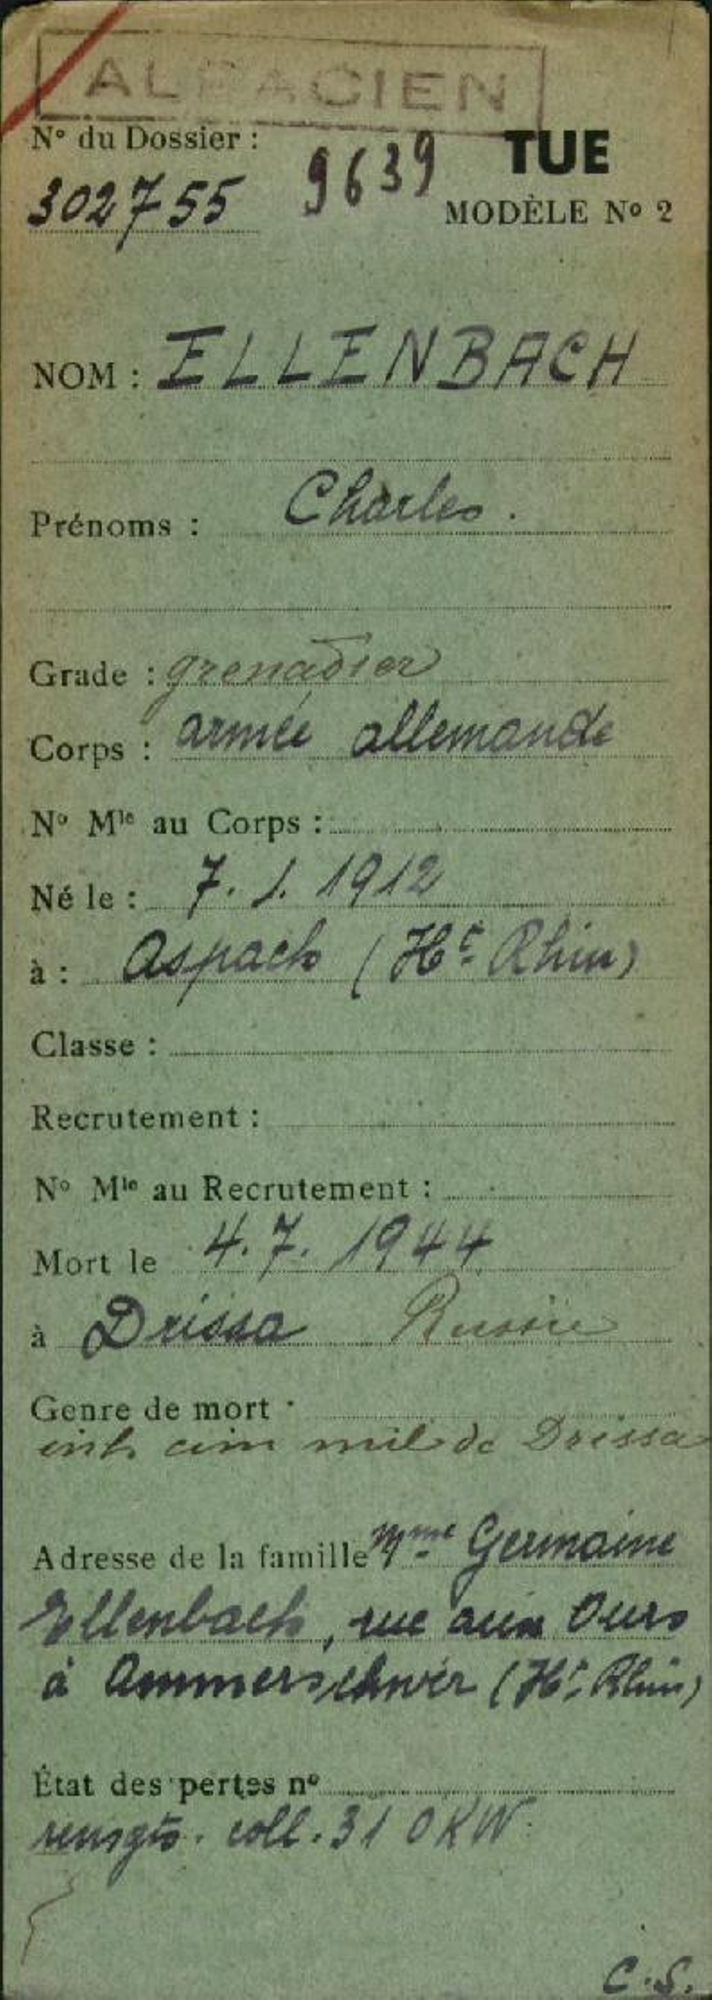 ALSACIEN
N° du Dossier :
302755 9639 TUE
MODÈLE N° 2
NOM : ELLENBACH
Prénoms : Charles.
Grade : grenadier
Corps : armée allemande
N° Mle au Corps :
Né le : 7. 1. 1912
à : Aspach (Ht Rhin)
Classe :
Recrutement :
N° Mle au Recrutement :
Mort le 4. 7. 1944
à Drissa Russie
Genre de mort :
inh cim mil de Drissa
Adresse de la famille Mme Germaine
Ellenbach, rue aux Ours
à Ammerschwir (Ht Rhin)
État des pertes n°
rensgts. coll. 31 OKW.
C.S.